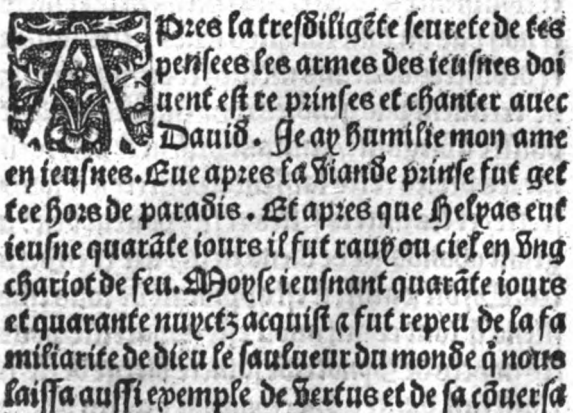 APres la tresdiligẽte seurete de tes
pensees les armes des ieusnes doi
uent estre prinses et chanter auec
Dauid. Je ay humilie mon ame
en ieusnes. Eue apres la viande prinse fut get
tee hors de paradis. Et apres que Helyas eut
ieusne quarãte iours il fut rauy ou ciel en vng
chariot de feu. Moyse ieusnant quarãte iours
et quarante nuyctz acquist ⁊ fut repeu de la fa
miliarite de dieu le saulueur du monde q̃ nous
laissa aussi exemple de vertus et de sa cõuersa